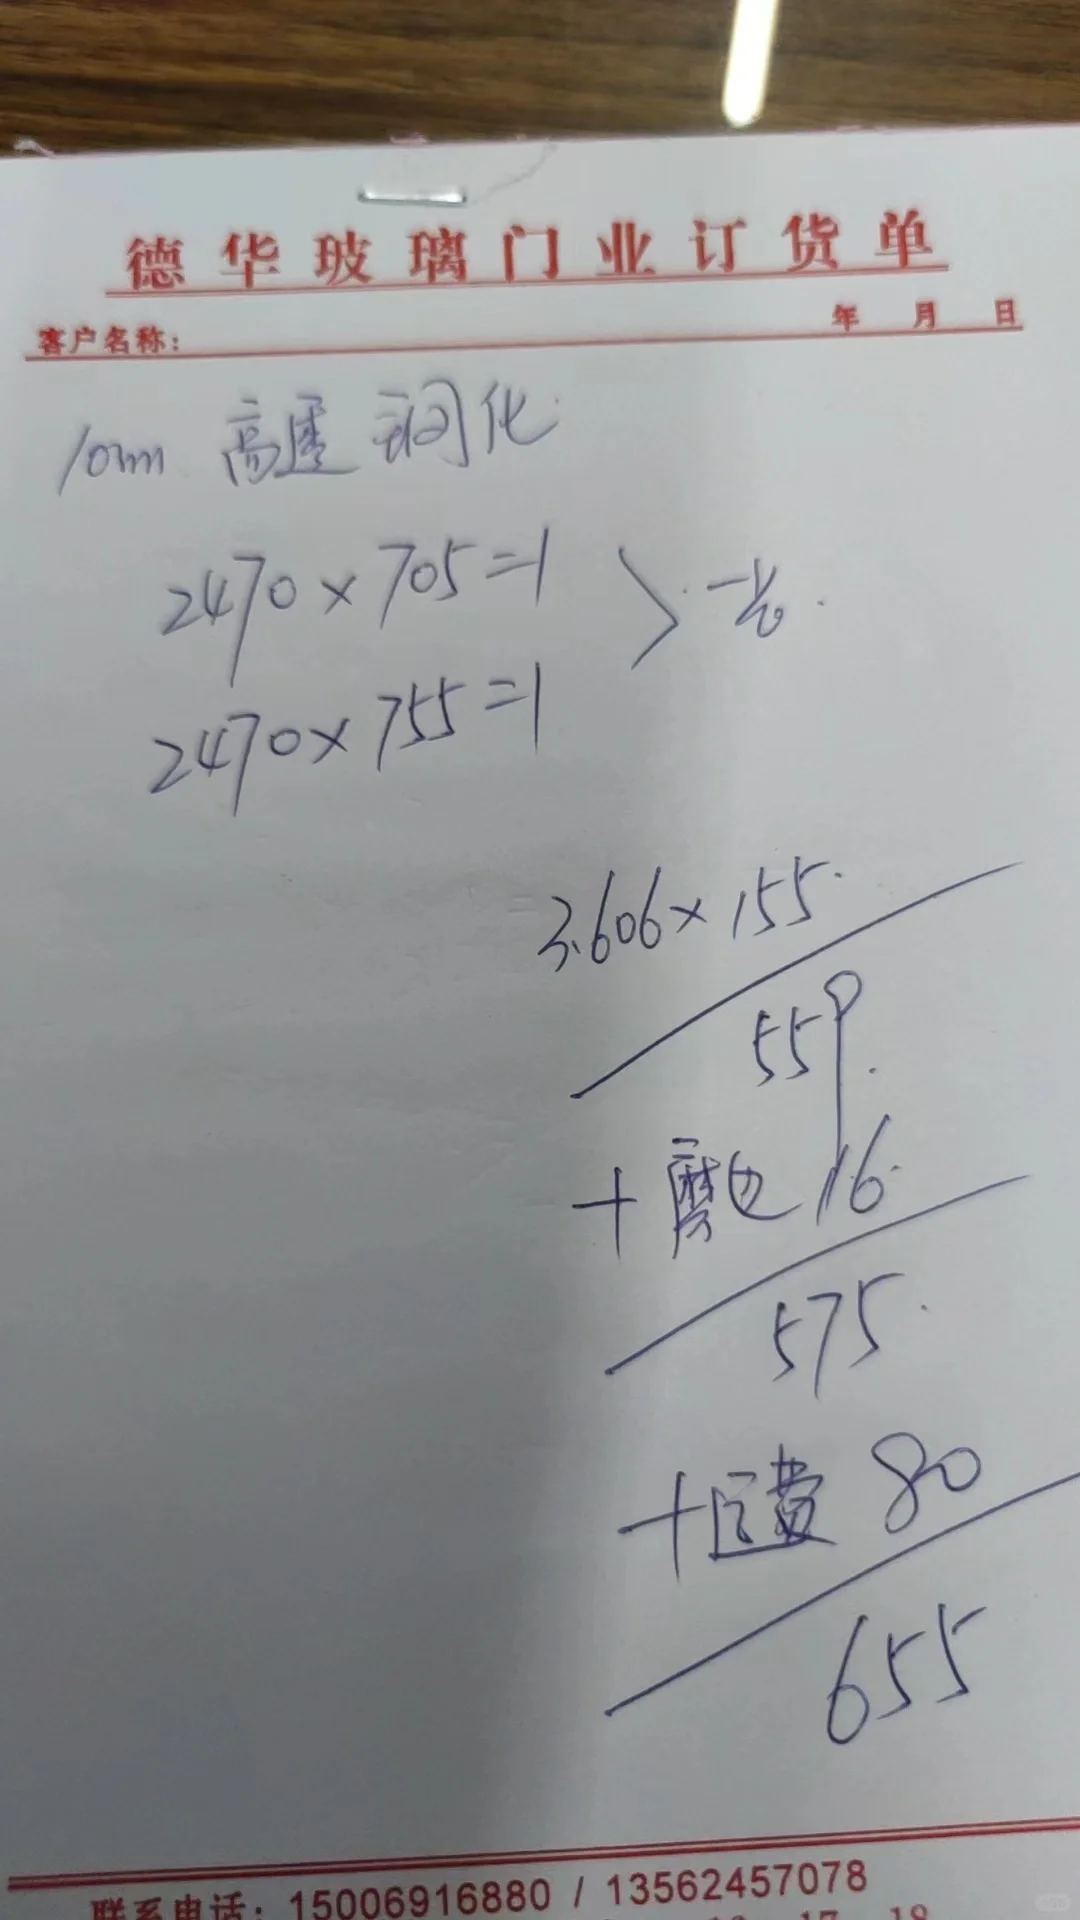 德华玻璃门业订货单
客户名称： 年 月 日
10mm 高透 钢化
2470×705=1
2470×755=1
3.606×155
559
+磨边 16
575
+运费 80
655
联系电话：15006916880 / 13562457078